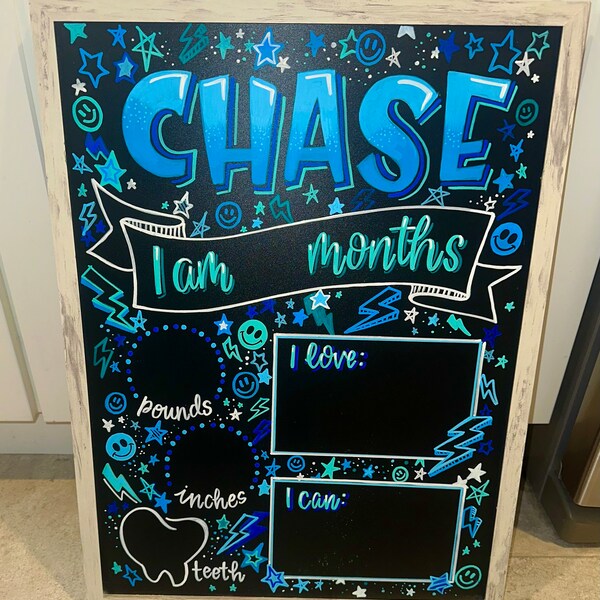 CHASE
I am months
I love:
pounds
inches
I can:
teeth